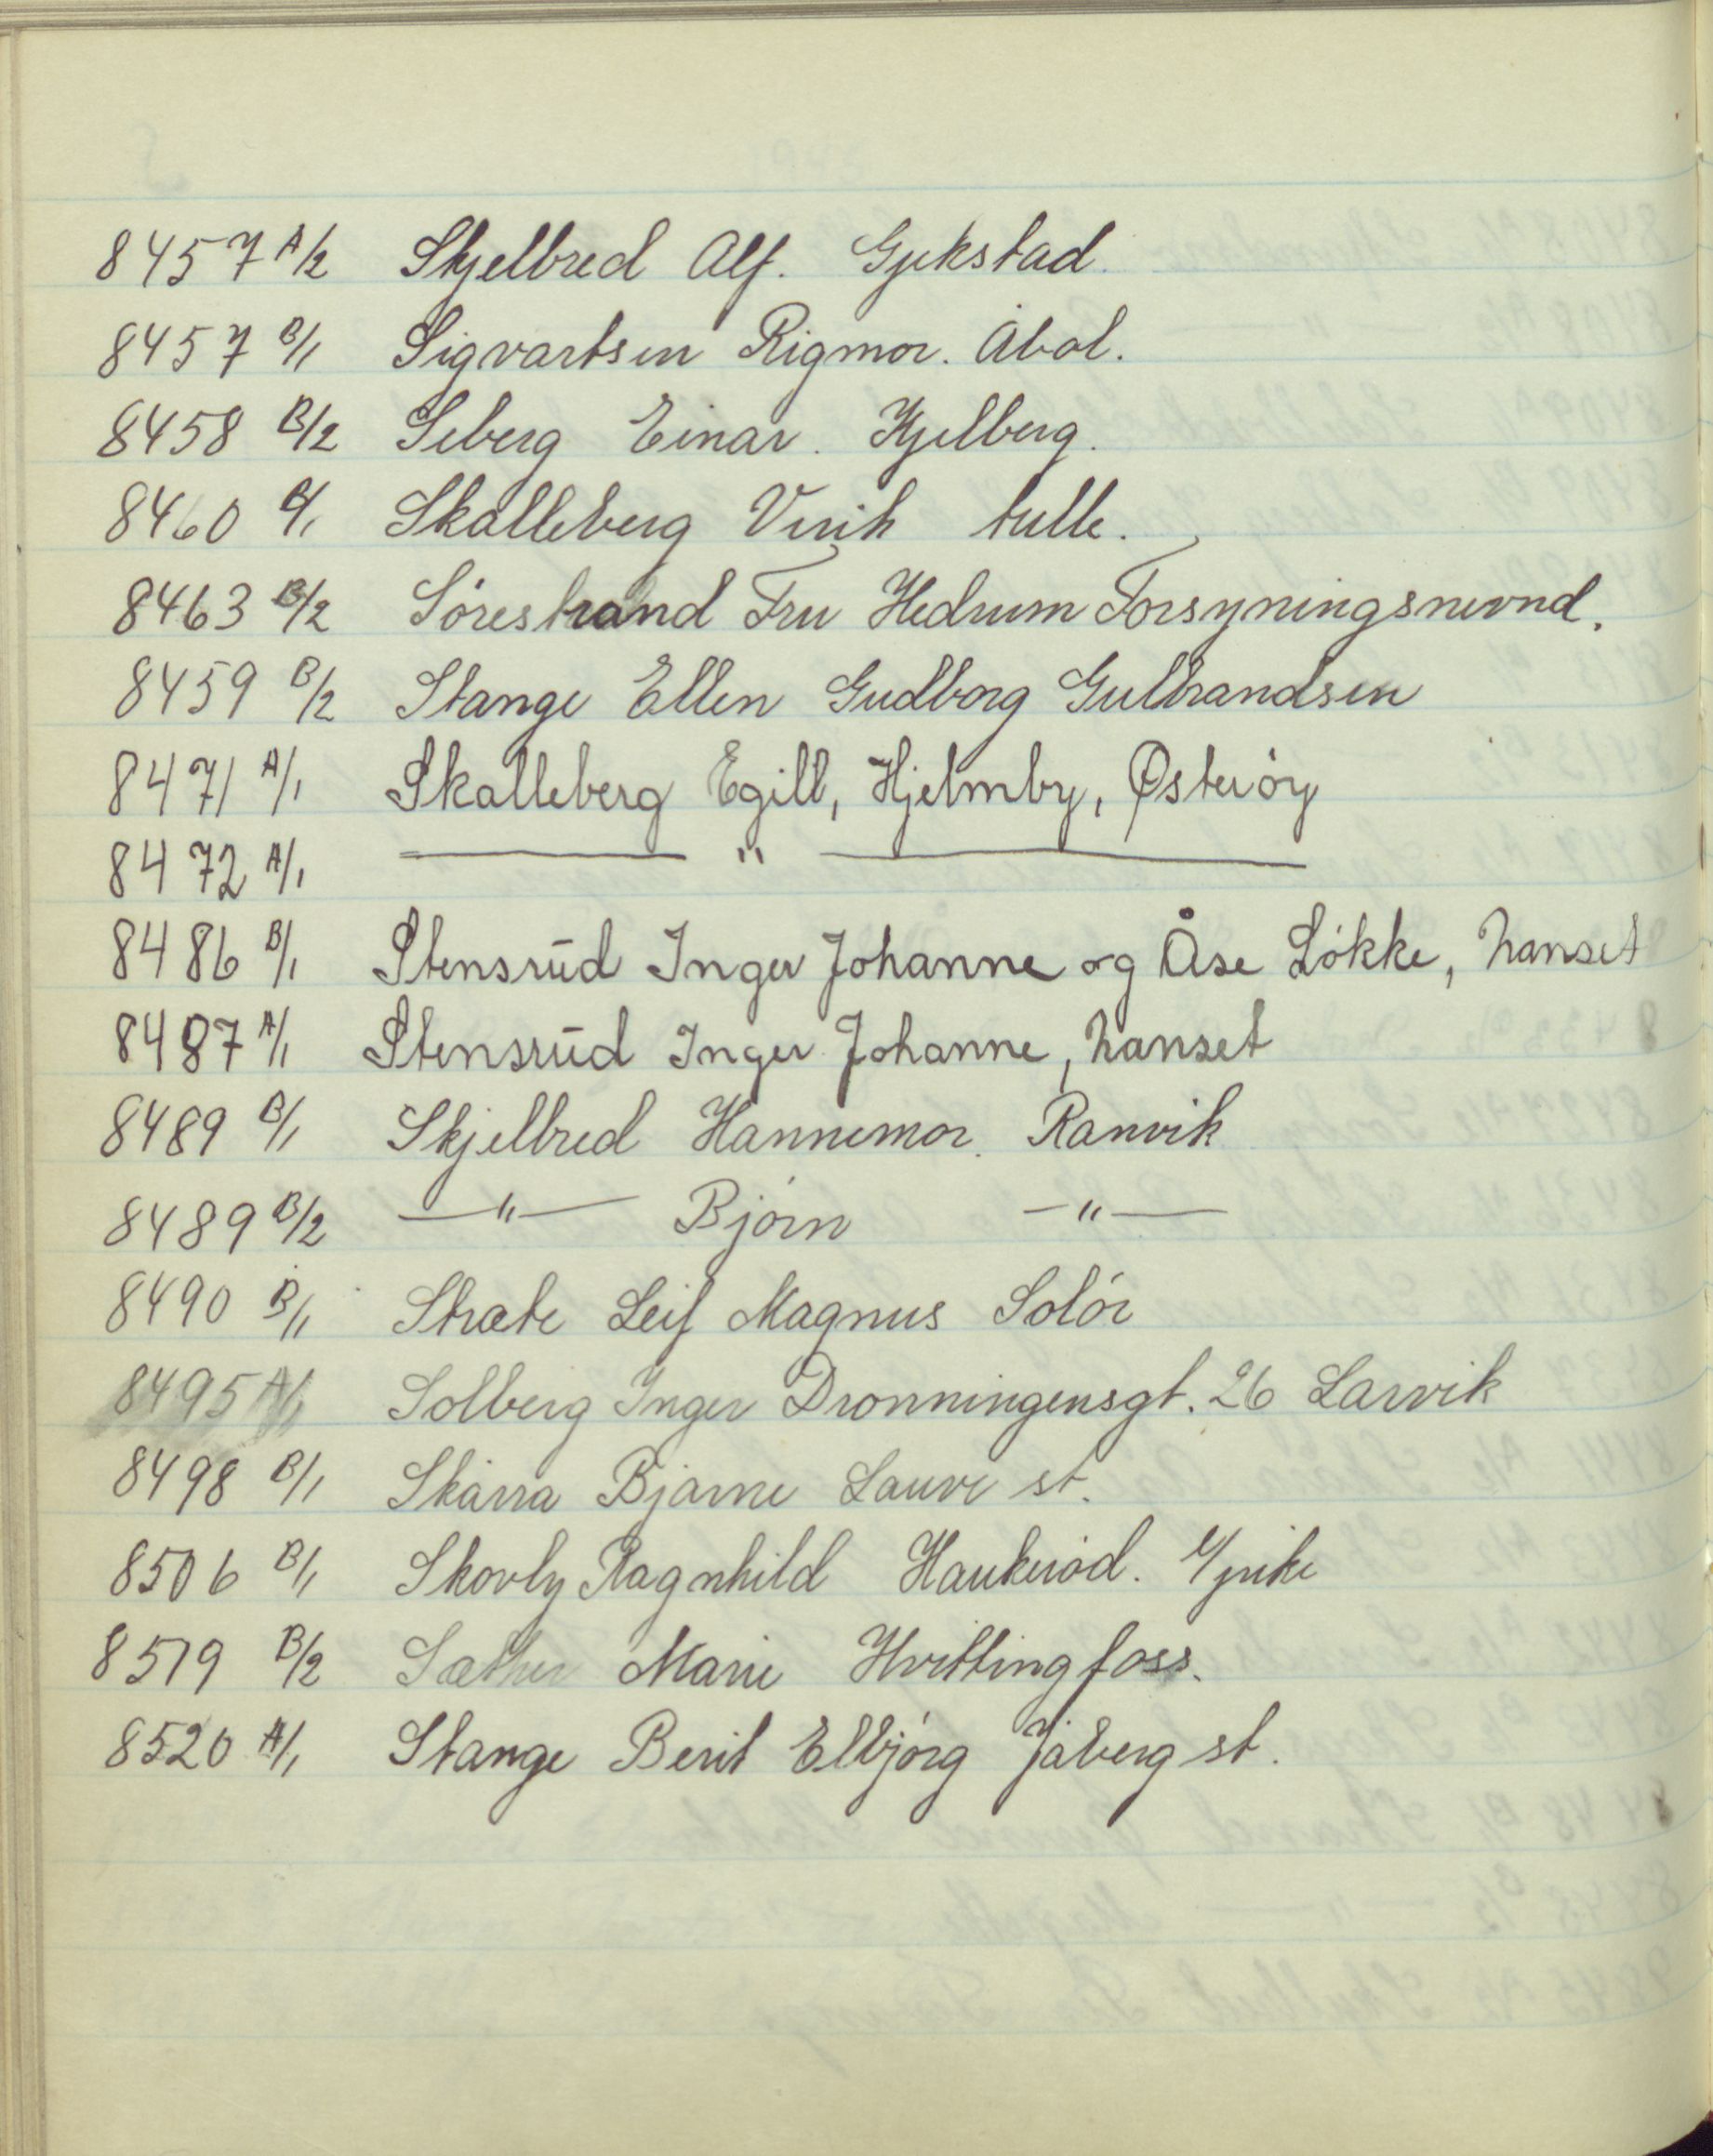 8457 A/2 Skjelbred Alf. Gjekstad.
8457 B/1 Sigvartsen Rigmor. Åbol.
8458 B/2 Seberg Einar. Hjelberg.
8460 B/1 Skalleberg Virik tulle.
8463 B/2 Sörestrand Fru Hedrum Forsyningsnevnd.
8459 B/2 Stange Ellen Gudborg Gulbrandsen
8471 A/1 Skalleberg Egill, Hjelmby, Østeröy
8472 A/1 — " —
8486 B/1 Stensrud Inger Johanne og Åse Lökke, hanset
8487 A/1 Stensrud Inger Johanne, hanset
8489 B/1 Skjelbred Hannemor. Ranvik
8489 B/2 — " — Björn — " —
8490 B/1 Stræte Leif Magnus Solör
8495 A/1 Solberg Inger Dronningensgt. 26 Larvik
8498 B/1 Skårra Bjarne Lauve st.
8506 B/1 Skovly Ragnhild Haukeröd.
8519 B/2 Sæther Marie Hvittingfoss.
8520 A/1 Stange Berit Elbjörg Jåberg st.